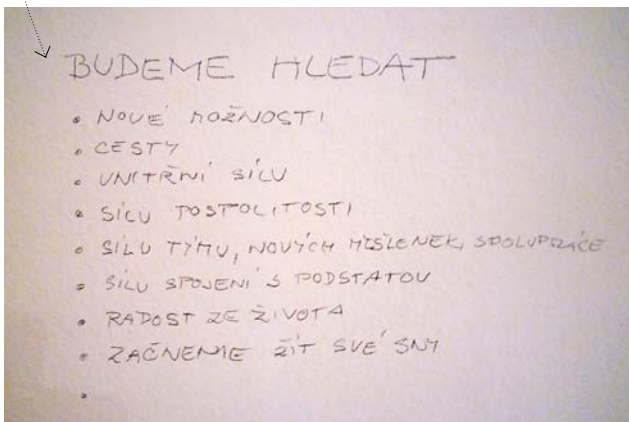 BUDEME HLEDAT
• NOVÉ MOŽNOSTI
• CESTY
• VNITŘNÍ SÍLU
• SÍLU POSPOLITOSTI
• SÍLU TÝMU, NOVÝCH MYŠLENEK, SPOLUPRÁCE
• SÍLU SPOJENÍ S PODSTATOU
• RADOST ZE ŽIVOTA
• ZAČNEME ŽÍT SVÉ SNY
•